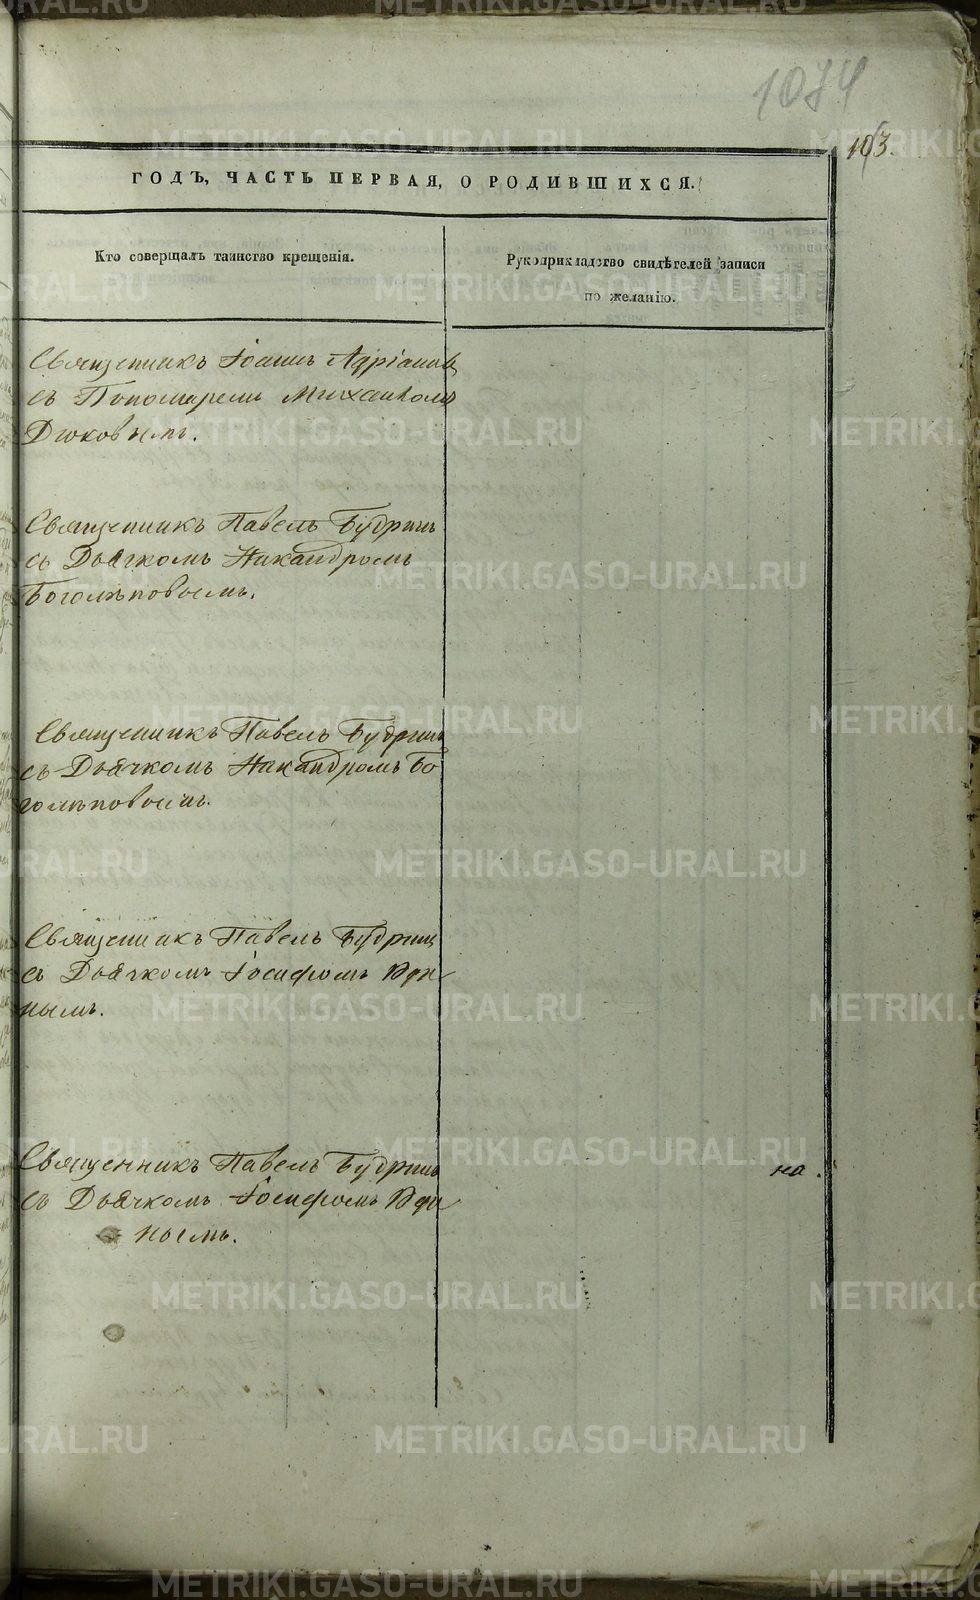 1074
103.
ГОДЪ, ЧАСТЬ ПЕРВАЯ, О РОДИВШИХСЯ.
Кто совершалъ таинство крещенія.
Рукоприкладство свидѣтелей записи
по желанію.
Священникъ Іоаннъ Адріановъ
съ Пономаремъ Михаиломъ
Дюковымъ.
Священникъ Павелъ Будринъ
съ Дьячкомъ Никандромъ
Боголѣповымъ.
Священникъ Павелъ Будринъ
съ Дьячкомъ Никандромъ Бо
голѣповымъ.
Священникъ Павелъ Будринъ
съ Дьячкомъ Іосифомъ
нымъ.
Священникъ Павелъ Будринъ
съ Дьячкомъ Іосифомъ
нымъ.
на.
METRIKI.GASO-URAL.RU